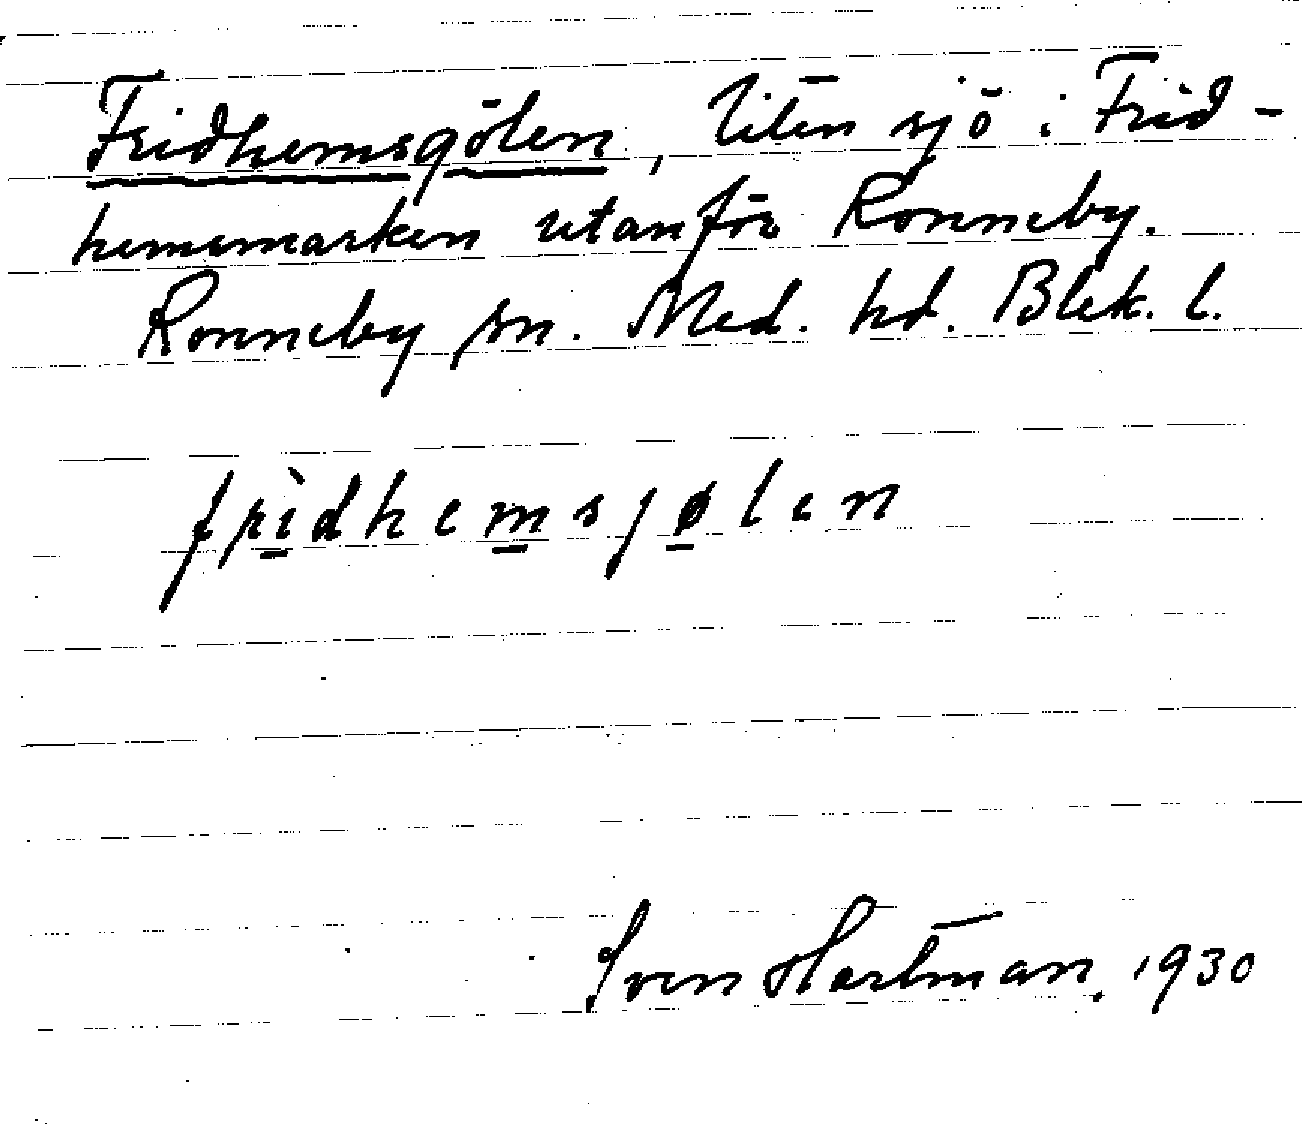 Fridhemsgölen, liten sjö i Frid-
hemsmarken utanför Ronneby.
Ronneby sn. Med. hd. Blek. l.
frìdhemsjølen
Sven Hartman. 1930